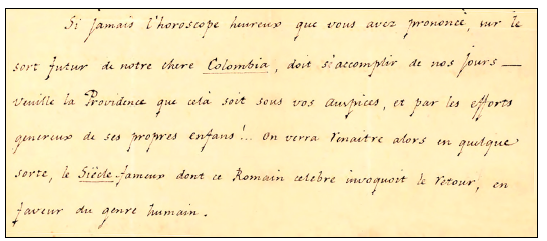 Si jamais l'horoscope heureux que vous avez prononcé, sur le
sort futur de notre chere Colombia, doit s'accomplir de nos jours —
veuille la Providence que celà soit sous vos auspices, et par les efforts
genereux de ses propres enfans!.. On verra renaitre alors en quelque
sorte, le Siècle fameux dont ce Romain celebre invoquoit le retour, en
faveur du genre humain.